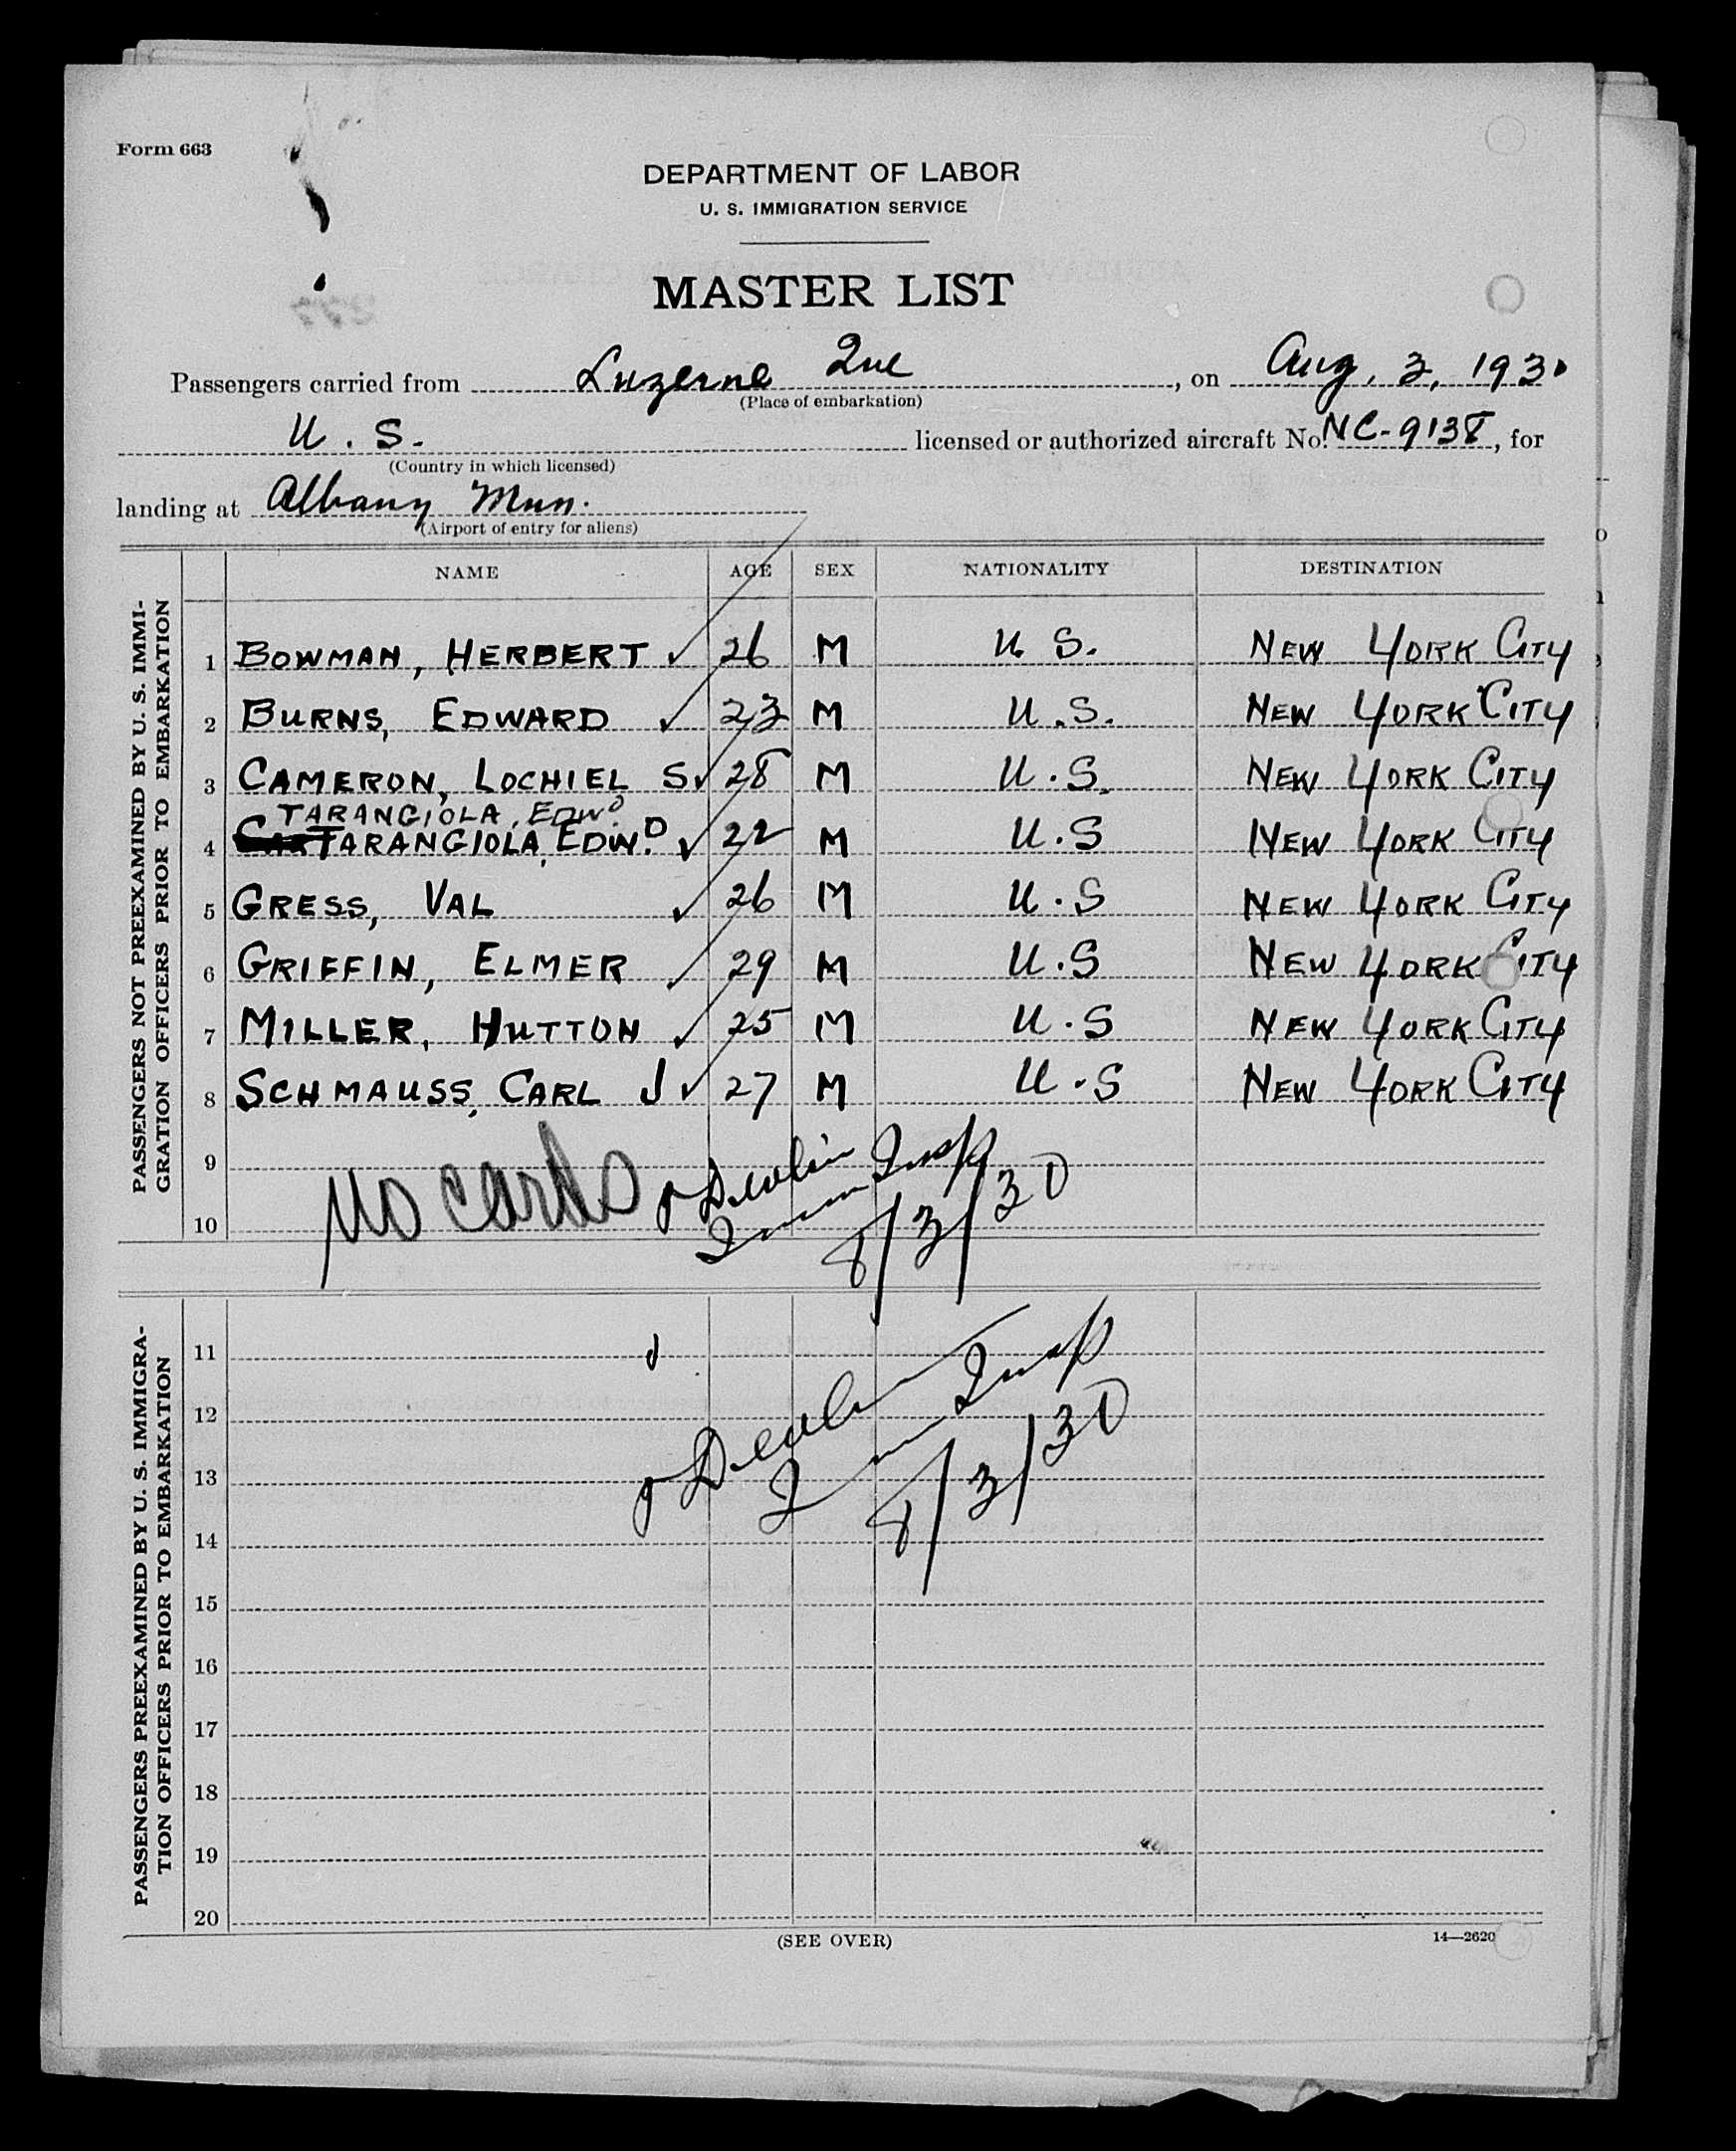 Form 663
DEPARTMENT OF LABOR
U. S. IMMIGRATION SERVICE
MASTER LIST
Passengers carried from Luzerne Que, on Aug, 3, 1930
(Place of embarkation)
U. S. licensed or authorized aircraft No. NC-9138, for
(Country in which licensed)
landing at Albany Mun.
(Airport of entry for aliens)
PASSENGERS NOT PREEXAMINED BY U. S. IMMI-
GRATION OFFICERS PRIOR TO EMBARKATION
NAME AGE SEX NATIONALITY DESTINATION
1 BOWMAN, HERBERT ✓ 26 M U. S. NEW YORK CITY
2 BURNS, EDWARD ✓ 23 M U.S. NEW YORK CITY
3 CAMERON, LOCHIEL S ✓ 28 M U.S. NEW YORK CITY
TARANGIOLA, EDWD.
4 TARANGIOLA, EDW.D ✓ 22 M U.S NEW YORK CITY
5 GRESS, VAL ✓ 26 M U.S NEW YORK CITY
6 GRIFFIN, ELMER ✓ 29 M U.S NEW YORK CITY
7 MILLER, HUTTON ✓ 25 M U.S NEW YORK CITY
8 SCHMAUSS, CARL J ✓ 27 M U.S NEW YORK CITY
9
10
No cards
Devlin
Imm Insp
8/3/30
PASSENGERS PREEXAMINED BY U. S. IMMIGRA-
TION OFFICERS PRIOR TO EMBARKATION
11
12
13
14
15
16
17
18
19
20
Devlin
Imm Insp
8/3/30
(SEE OVER)
14—2620